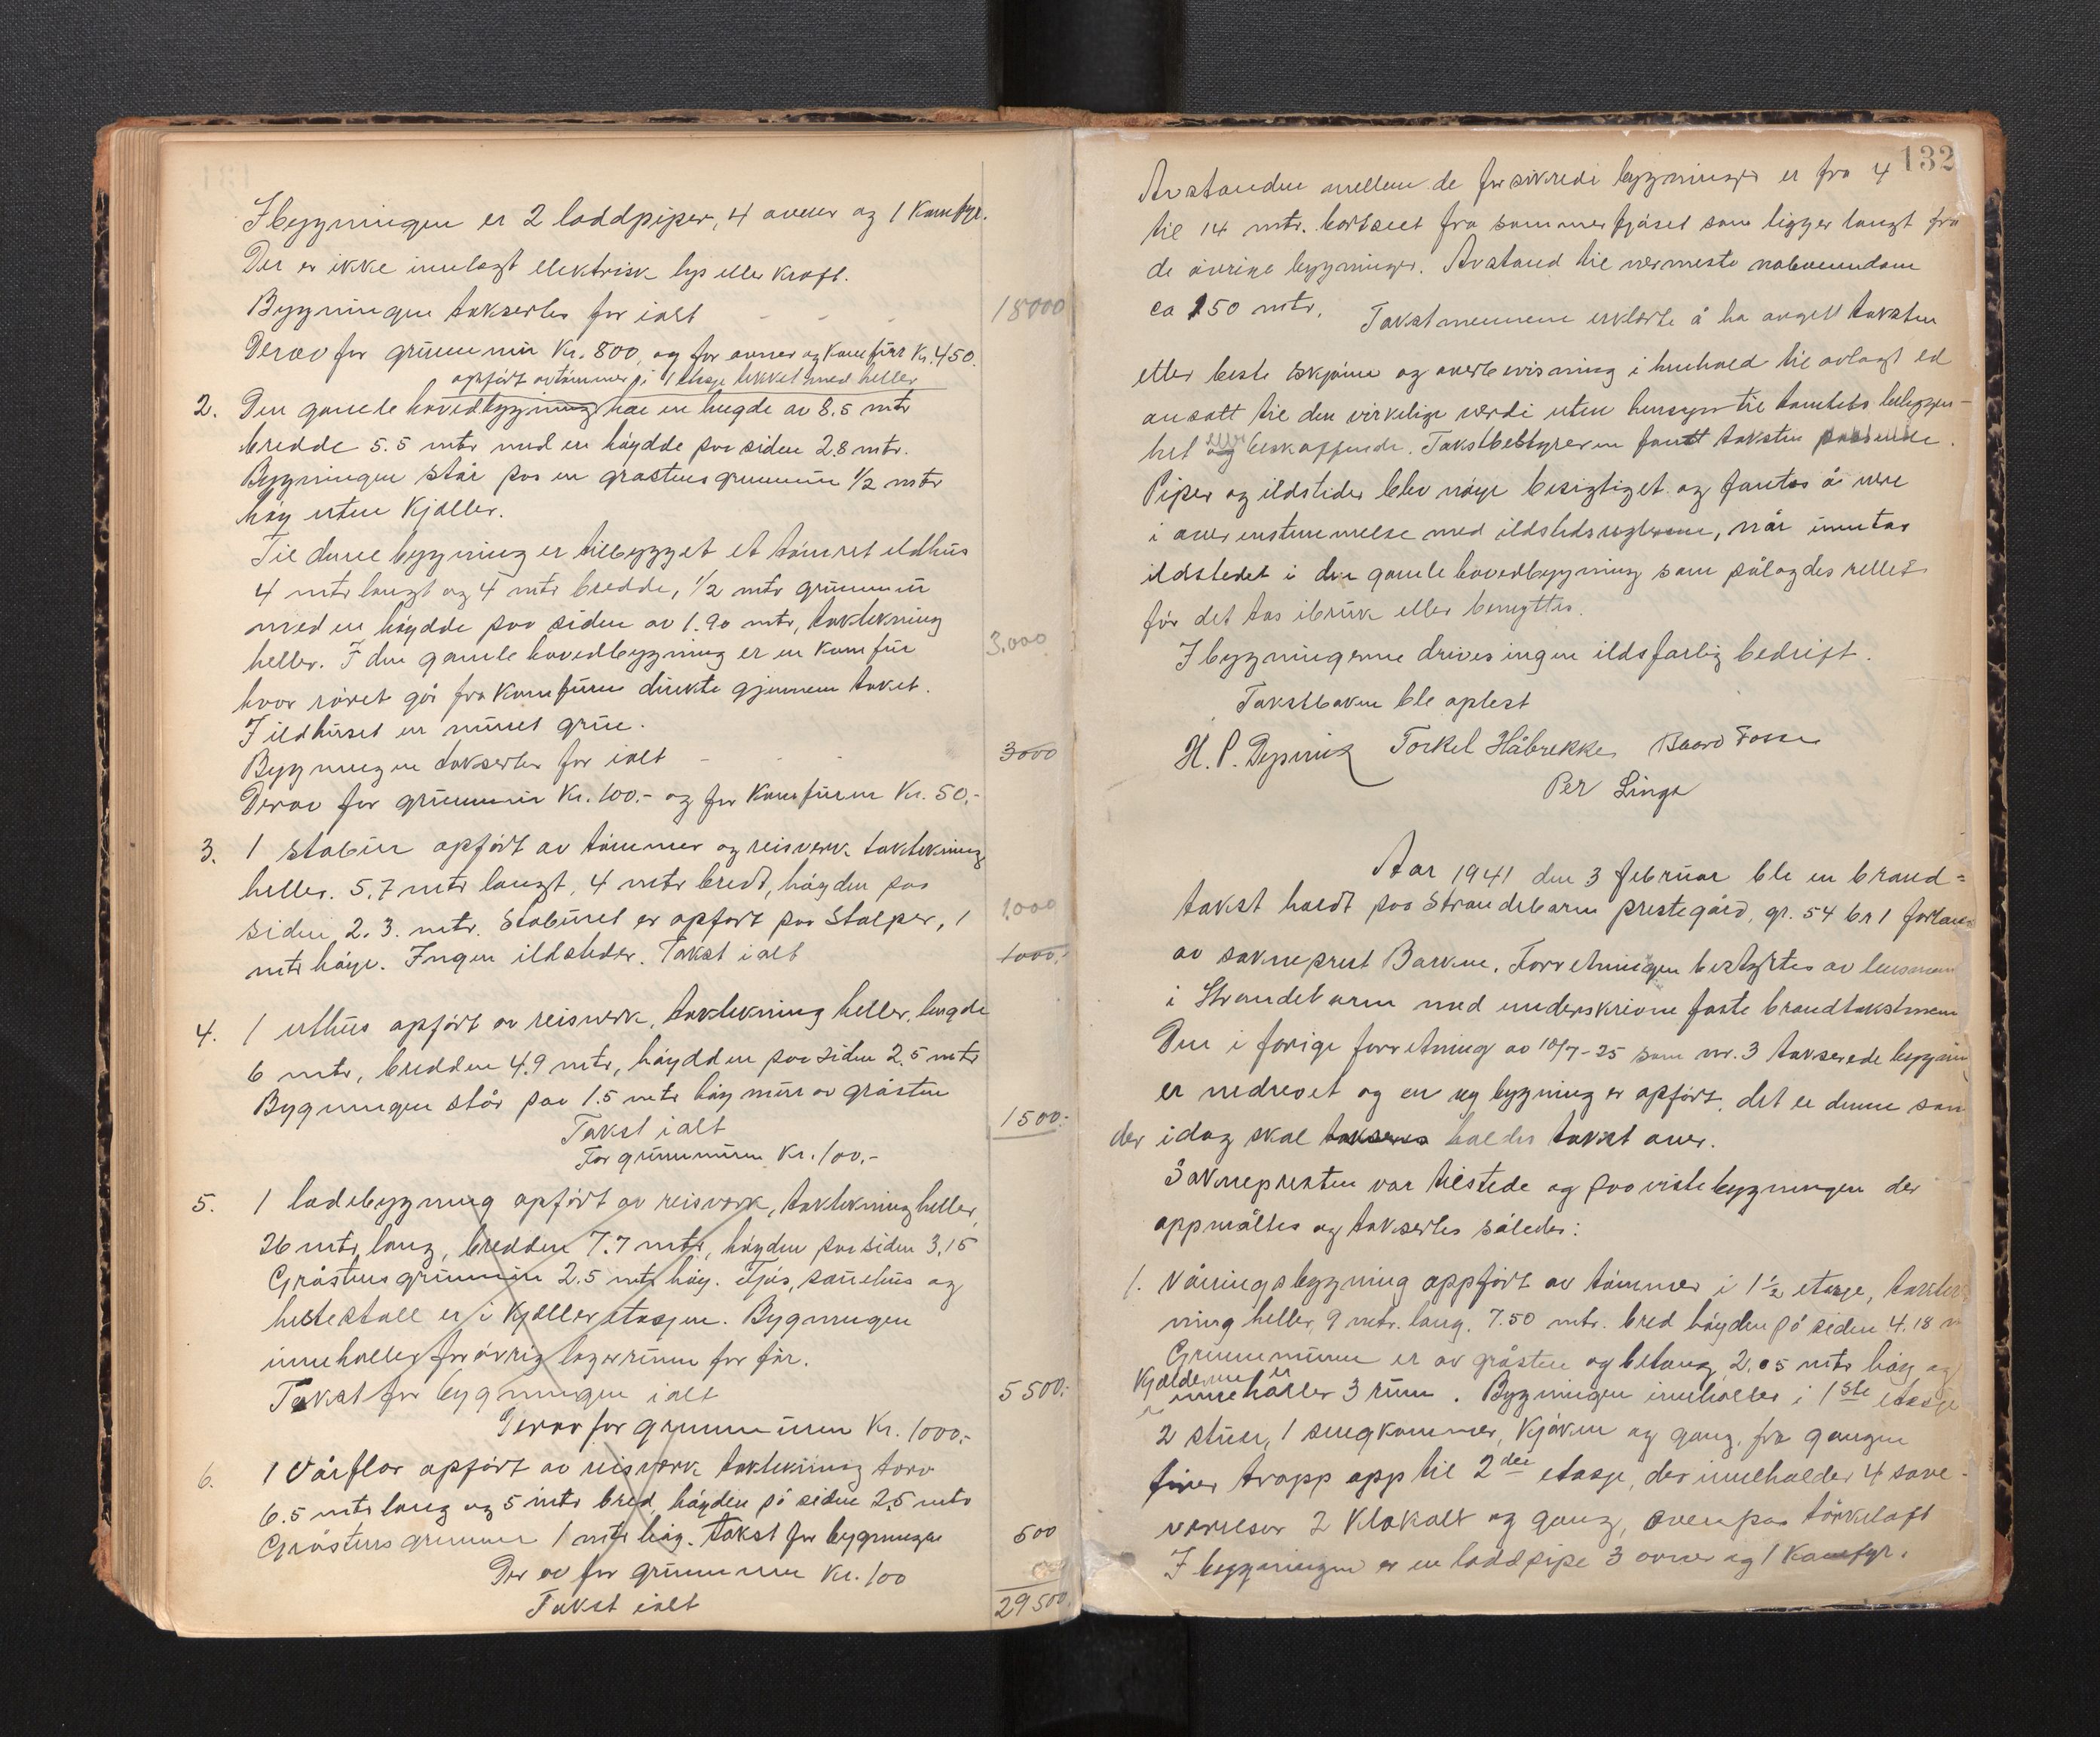 I bygningen er 2 loddpiper, 4 ovner og 1 komfyr.
Der er ikke innlagt elektrisk lys eller kraft.
Bygningen takserter for ialt - - - 18000
Derav for grunnmur Kr. 800, og for ovner og komfürr Kr. 450.
opført av tømmer i 1 etasje tekket med heller
2. Den gamle hovedbygning har en lengde av 8.5 mtr
bredde 5.5 mtr med en høydde paa siden 2.8 mtr.
Bygningen står paa en grastensgrunmur 1/2 mtr
høy uten Kjeller.
Til denne bygning er tilbygget et tømret ildhus
4 mtr langt og 4 mtr bredde, 1/2 mtr grunmur
med en høydde paa siden av 1.90 mtr, taktekning
heller. I den gamle hovedbygning er en Komfür 3.000
hvor røret går fra Komfüren direkte gjennem taket.
I ildhuset en muret grue.
Bygningen takserter for ialt - - - 3000
Derav for grunmur Kr. 100.- og for Komfüren Kr. 50.-
3. 1 stabur opført av tømmer og reisverk taktekning
heller. 5.7 mtr langt, 4 mtr bredt, høyden paa
siden 2.3. mtr. Staburet er opført paa Stolper, 1 1.000
mtr høye. Ingen ildsteder. Takst ialt 1000.-
4. 1 uthus opført av reisverk, taktekning heller, lengde
6 mtr, bredden 4.9 mtr, høydden paa siden 2.5 mtr
Bygningen står paa 1.5 mtr høy mur av gråsten
Takst ialt 1500.-
For grunmuren Kr. 100.-
5. 1 ladebygning opført av reisverk, taktekning heller,
26 mtr lang, bredden 7.7 mtr, høyden paa siden 3,15
Gråstensgrunmur 2.5 mtr høy. Fjøs, sauehus og
hestestall er i Kjelleretasjen. Bygningen
inneholler forøvrig lagerrum for fôr.
Takst for bygningen ialt 5500.-
Derav for grunmuren Kr. 1000.-
6. 1 Vårflor opført av reisverk taktekning torv
6.5 mtr lang og 5 mtr bred, høyden på siden 2,5 mtr
Gråstens grunmur 1 mtr høy. Takst for bygningen 500
Der av for grunmuren Kr. 100
Takst ialt 29500.
132
Avstanden mellem de forsikrede bygninger er fra 4
til 14 mtr. bortseet fra sommerfjøset som ligger langt fra
de øvrige bygninger. Avstand til nermeste naboeiendom
ca 150 mtr. Takstmennene erklærte å ha avgett taksten
etter beste skjønn og overbevisning i henhold til avlagt ed
ansatt til den virkelige verdi uten hensyn til tomtets beliggen-
het eller beskaffende. Takstbestyreren fantt taksten passende.
Piper og ildsteder blev nøye besigtiget og fantes å være
i overenstemmelse med ildstedsreglerne, når unntas
ildstedet i den gamle hovedbygning som pålagdes rettet
før det tas ibruk eller benyttes.
I bygningerne drives ingen ildsfarlig bedrift.
Takstboken ble oplest
H. P. Torkel Håbrekke Baard Fosse
Per Linga
Aar 1941 den 3 februar ble en brand-
takst holdt paa Strandebarm prestegård, gr. 54 br 1 forlangt
av sokneprest Barkne. Forretningen bestyrtes av lensmann
i Strandebarm med underskrivne faste brandtakstmenn
Den i forige forretning av 10/7-25 som nr. 3 takserede bygning
er nedrevet og en ny bygning er opført, det er denne som
der idag skal takseres holdes takst over.
Soknepresten var tilstede og paaviste bygningen der
oppmåltes og takserter således:
1. Våningsbygning oppført av tømmer i 1 1/2 etasje, taktek-
ning heller, 9 mtr. lang. 7.50 mtr. bred høyden på siden 4.18 m
Grunnmuren er av gråsten og betong 2.05 mtr høy og
Kjelderne er
inneholler 3 rum. Bygningen inneholler i 1ste etasje
2 stuer, 1 sengkammer, Kjøken og gang, fra gangen
fører trapp opp til 2den etasje, der inneholder 4 sove-
værelser 2 Klokott og gang, ovenpaa tørkeloft
I bygningen er en loddpipe 3 ovner og 1 Komfyr.